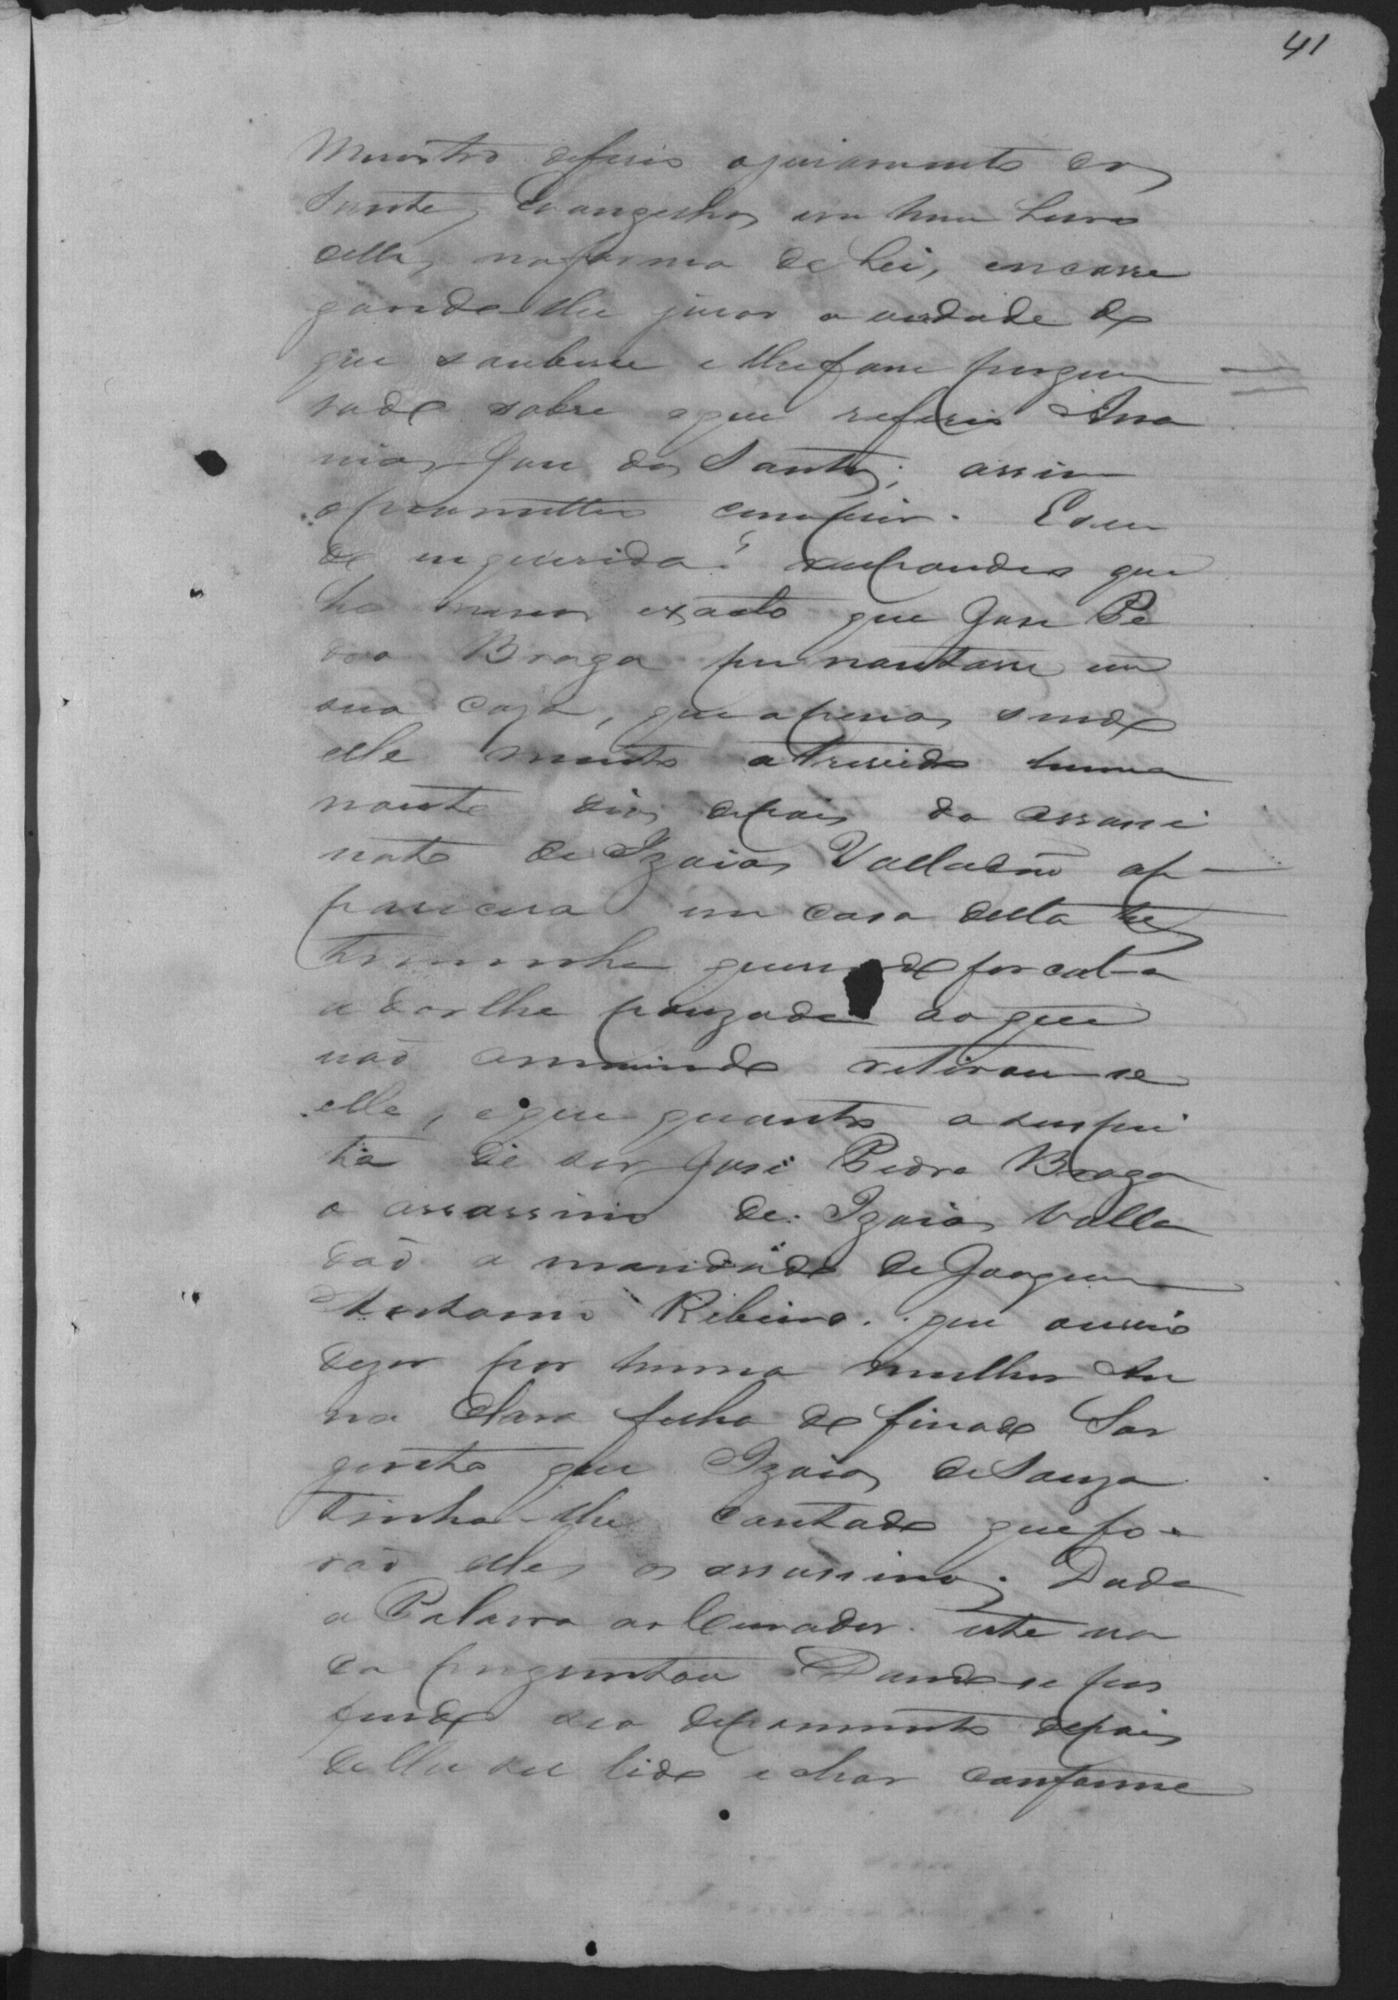 41
Ministro deferio o juramento dos
Santos Evangelhos em hum Livro
delles, na forma da Lei, encarre
gando-lhe jurar a verdade do
que soubesse e lhe fosse pergun
tado sobre o que referio Ana
nias José dos Santos; assim
o prometteo cumprir. E sen
do inquerida? respondeo que
he menos exacto que José Pe
dro Braga pernoutasse em
sua caza, que apenas sendo
elle muito atrevido huma
noute dias depois do assassi
nato de Izaias Valladão ap
parecera em casa della tes
timunha querendo forcal-a
a darlhe pouzada ao que
não annuindo retirou-se
elle, e que quanto a suspei
ta de ser José Pedro Braga
o assassino de Izaias Valla
dão a mandado de Joaquim
Antonio Ribeiro. que ouvio
dizer por huma mulher An
na Clara filha do finado Sar
gento que Izaias de Souza
tinha-lhe contado que fo-
rão elles os assassinos. Dada
a Palavra ao Curador. este na
da perguntou Dando-se por
findo seo depoimento depois
de lhe ser lido e achar conforme